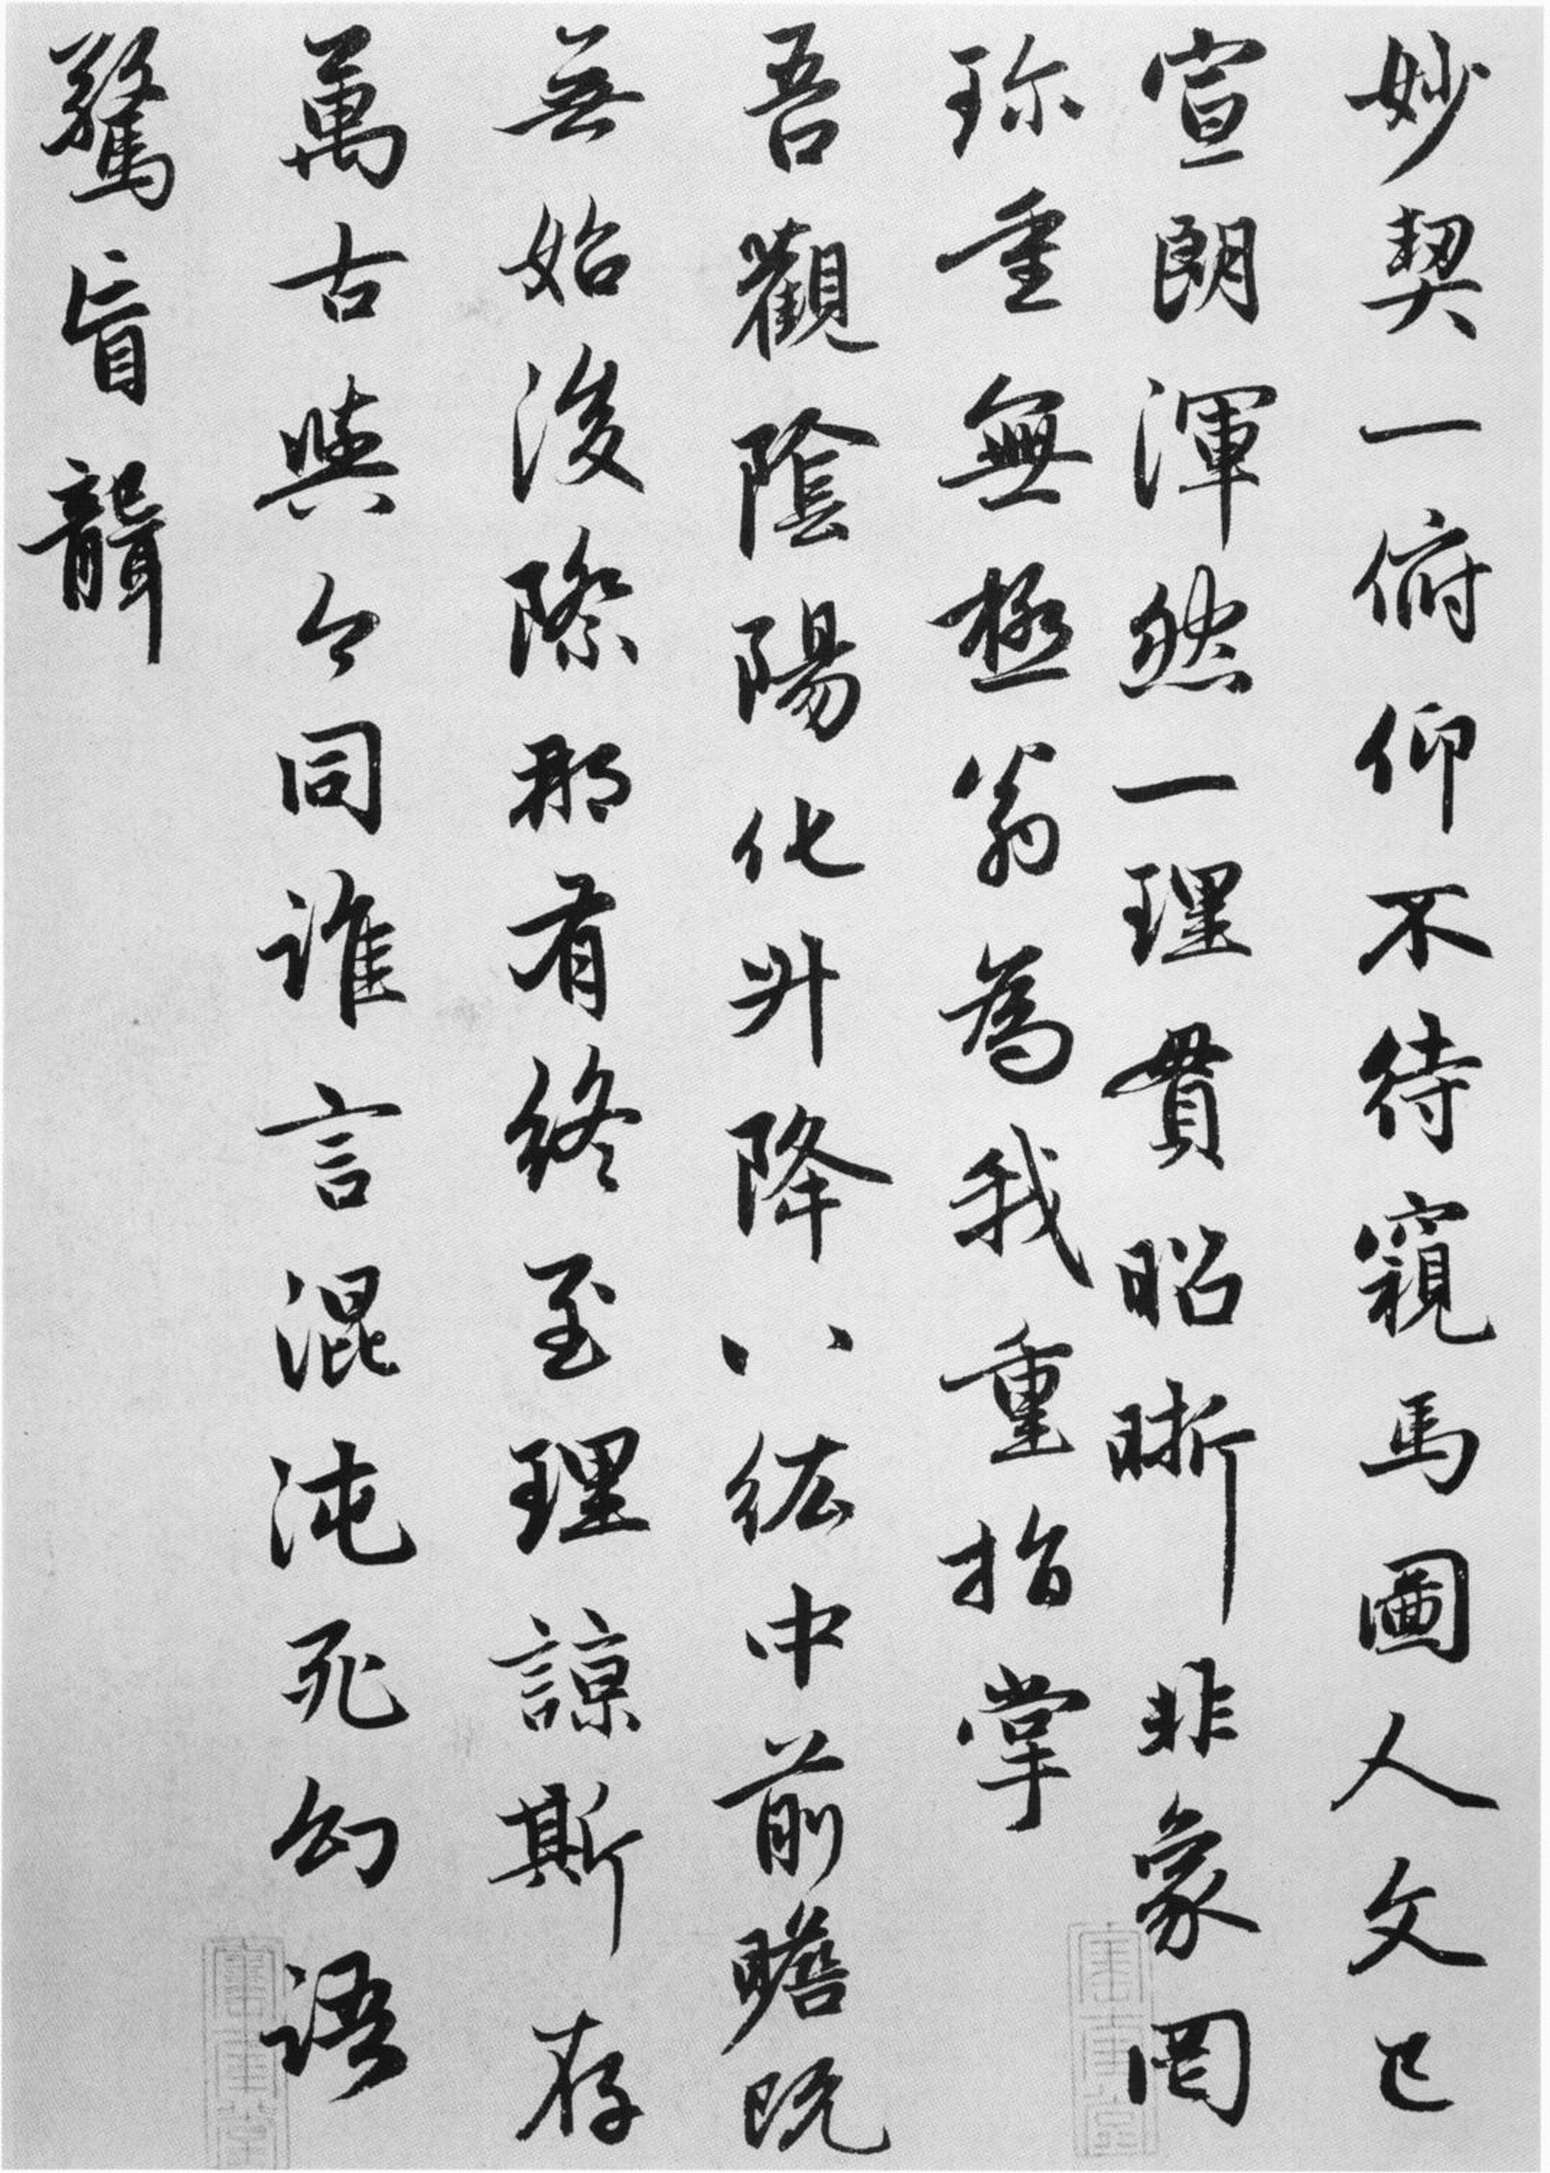 妙契一俯仰不待窺馬圖人文已
宣朗渾然一理貫昭晰非象罔
珎重無極翁為我重指掌
吾觀陰陽化升降八紘中前瞻既
無始後際那有終至理諒斯存
萬古與今同誰言混沌死幻語
驚盲聾